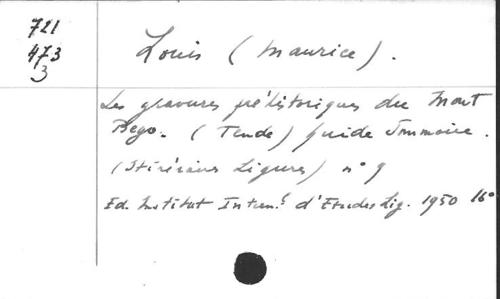 721
473
3
Louis (Maurice).
Les gravures préhistoriques du Mont
Bego. (Tende) guide sommaire.
(Itinéraires Ligures) n° 9
Ed. Institut Intern.l d'Etudes Lig. 1950 16°